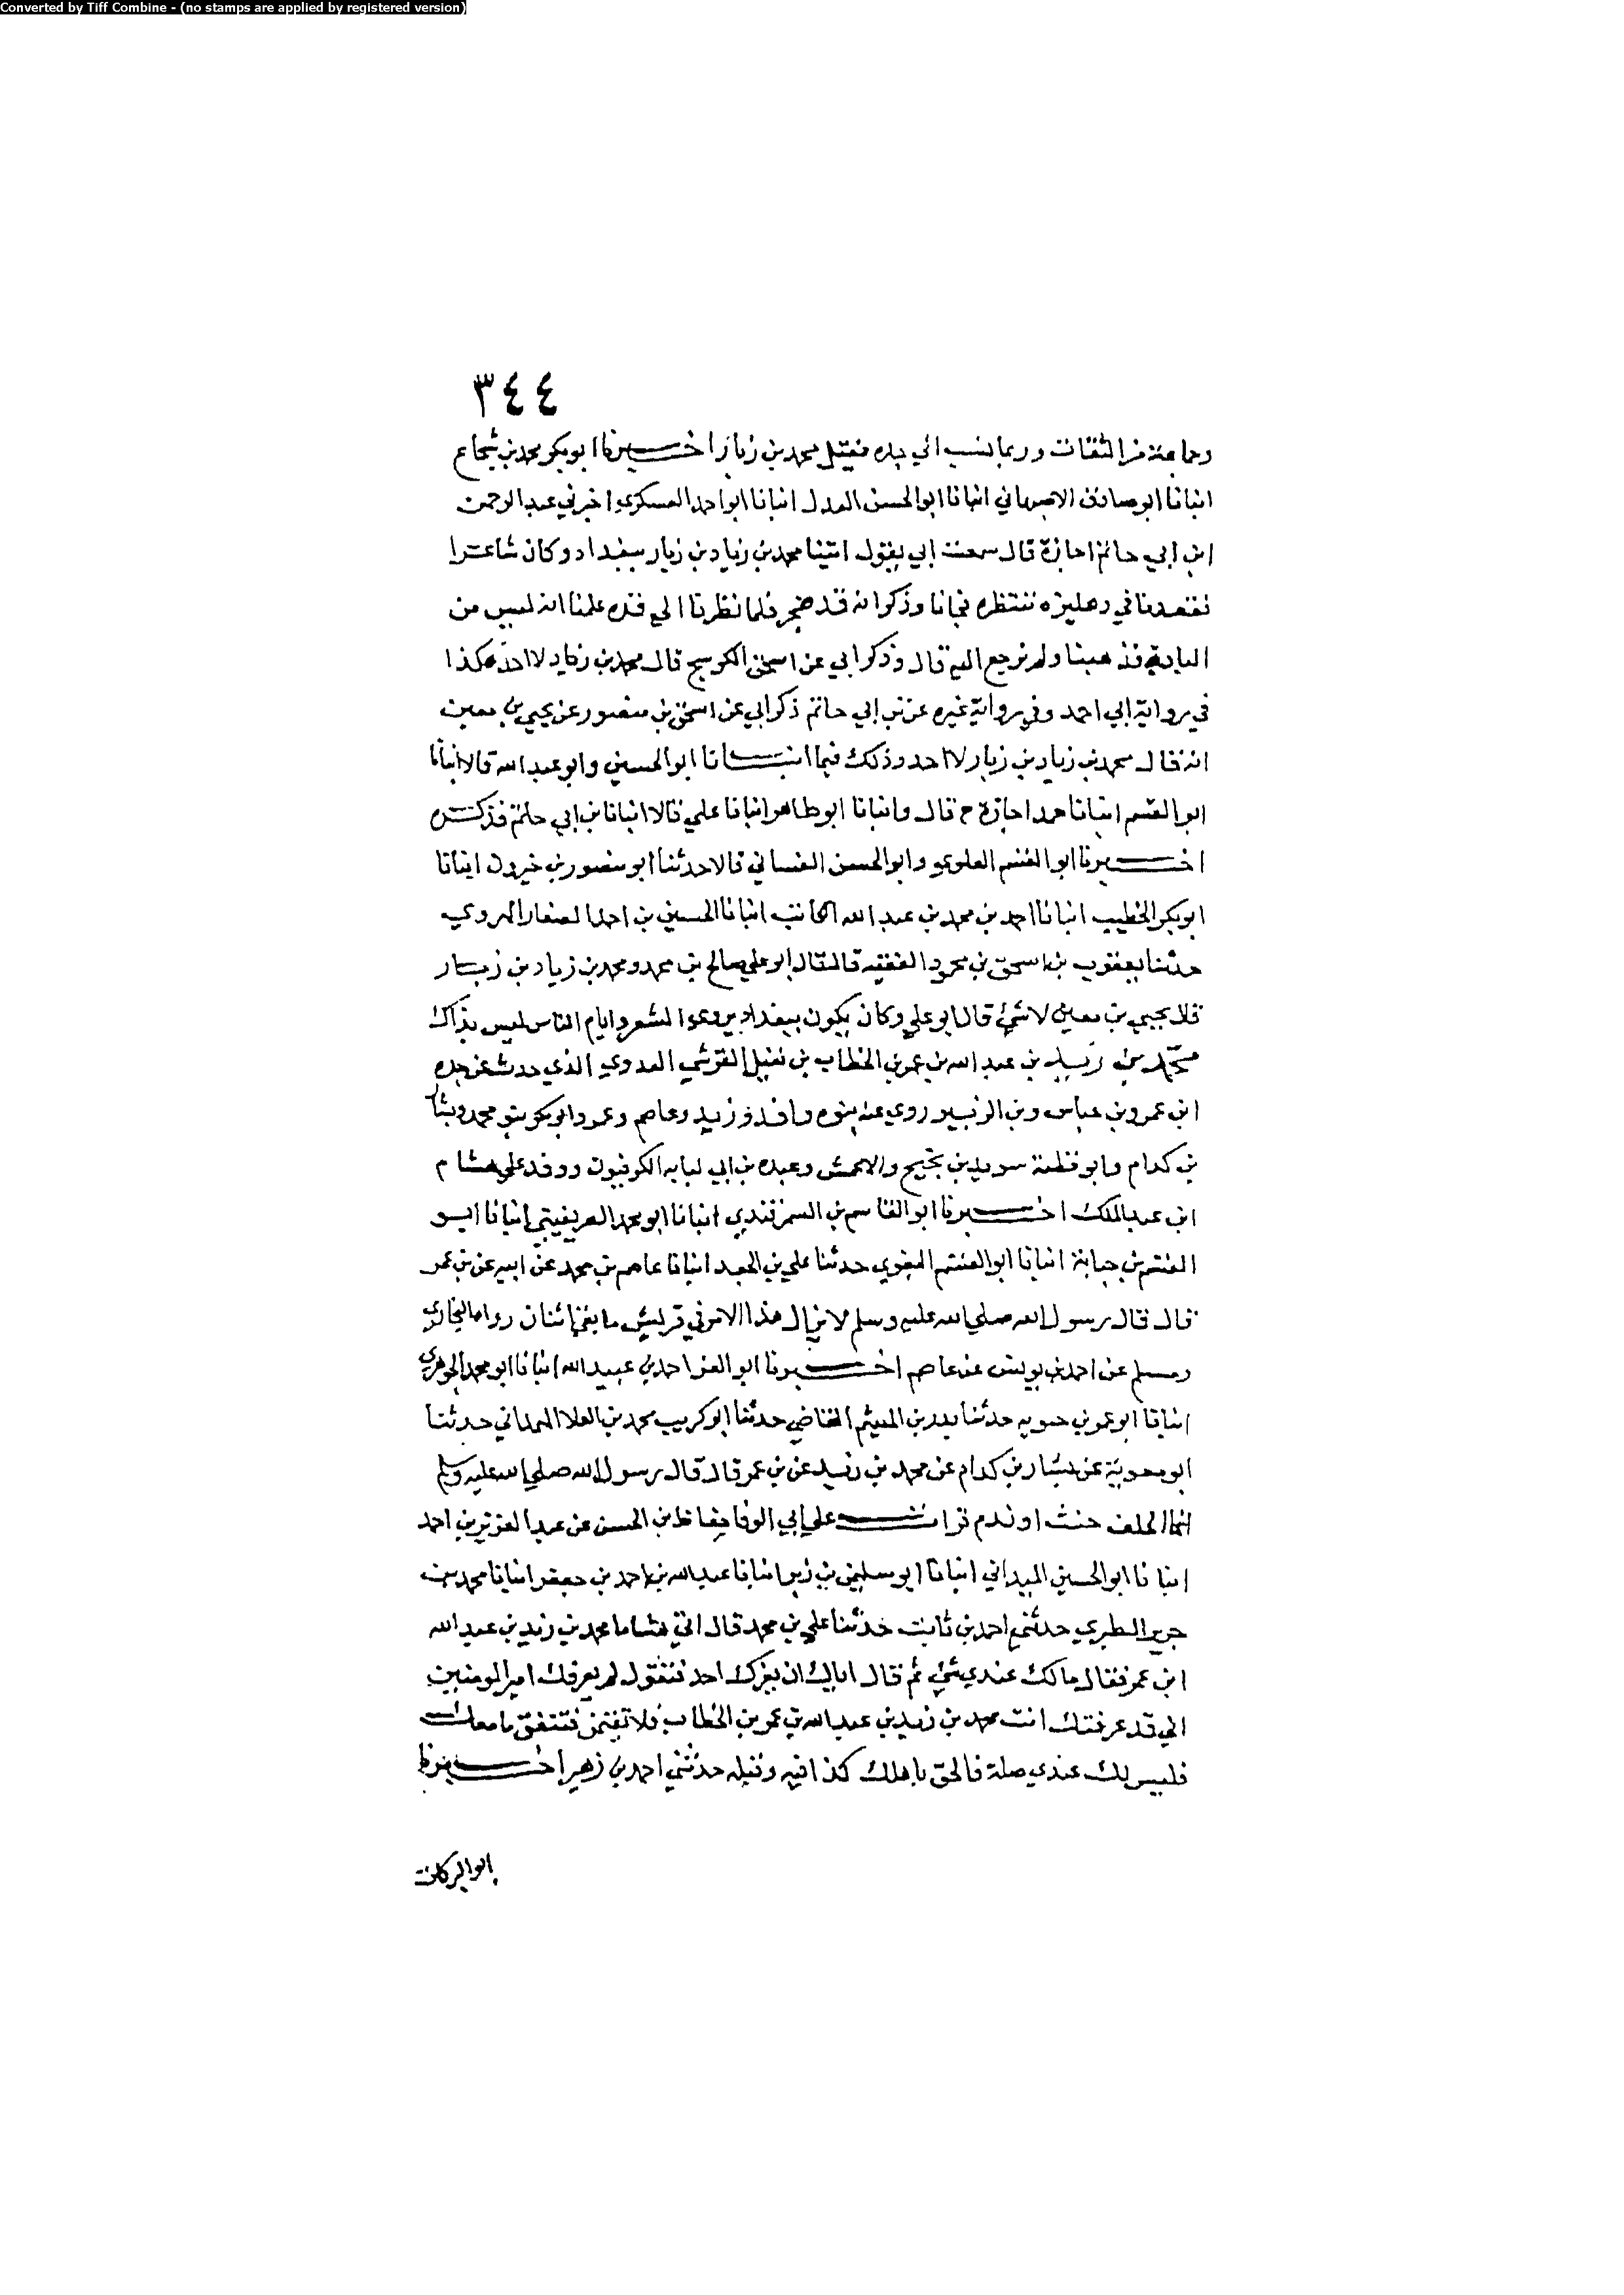 Converted by Tiff Combine - (no stamps are applied by registered version)
٣٤٤
وجماعة من الثقات وربما نسب الي جده فقيل محمد بن زبار اخبرنا ابو بكر محمد بن شجاع
انبانا ابو صادق الاصبهاني انبانا ابو الحسن العدل انبانا ابو احمد العسكري اخبرني عبد الرحمن
ابن ابي حاتم اجازة قال سمعت ابي يقول اتينا محمد بن زياد بن زبار ببغداد وكان شاعرا
فقعدنا في دهليزه ننتظره فجانا وذكر انه قد ضجر فلما نظرنا الي قده علمنا انه ليس من
البادية فذهبنا ولم نرجع اليه قال وذكر ابي عن اسحق الكوسج قال محمد بن زياد لا احد هكذا
في رواية ابي احمد وفي رواية غيره عن بن ابي حاتم ذكر ابي عن اسحق بن منصور عن يحيي بن معين
انه قال محمد بن زياد بن زبار لا احد وذلك فيما انبانا ابو الحسين وابو عبد الله قالا انبانا
ابو القسم انبانا حمد اجازة ح قال وانبانا ابو طاهر انبانا علي قالا انبانا بن ابي حاتم فذكره
اخبرنا ابو القسم العلوي وابو الحسن الغساني قالا حدثنا ابو منصور بن خيرون انبانا
ابو بكر الخطيب انبانا احمد بن محمد بن عبد الله الكاتب انبانا الحسين بن احمد الصفار الهروي
حدثنا يعقوب بن اسحق بن محمود الفقيه قال قال ابو علي صالح بن محمد ومحمد بن زياد بن زبار
قال يحيي بن معين لا شي قال ابو علي وكان يكون ببغداد يروي الشعر وايام الناس ليس بذاك
محمد بن زيد بن عبد الله بن عمر بن الخطاب بن نفيل القرشي العدوي الذي حدث عن جده
ابن عمر وبن عباس وبن الزبير روي عنه بنوه واقد وزيد وعاصم وعمر وابو بكر بنو محمد وبشار
بن كدام وابو قطبة سويد بن نجيح والاعمش وعبده بن ابي لبابه الكوفيون ووفد علي هشام
ابن عبد الملك اخبرنا ابو القاسم بن السمرقندي انبانا ابو محمد الصريفيني انبانا ابو
القسم بن حبابة انبانا ابو القسم البغوي حدثنا علي بن الجعد انبانا عاصم بن محمد عن ابيه عن بن عمر
قال قال رسول الله صلي الله عليه وسلم لا يزال هذا الامر في قريش ما بقي اثنان رواه البخاري
ومسلم عن احمد بن يونس عن عاصم اخبرنا ابو العز احمد بن عبيد الله انبانا ابو محمد الجوهري
انبانا ابو عمر بن حيويه حدثنا بدر بن الهيثم القاضي حدثنا ابو كريب محمد بن العلا الهمداني حدثنا
ابو معوية عن بشار بن كدام عن محمد بن زيد عن بن عمر قال قال رسول الله صلي الله عليه وسلم
انما الحلف حنث او ندم قرات علي ابي الوفا حفاظ بن الحسن عن عبد العزيز بن احمد
انبانا ابو الحسين الميداني انبانا ابو سليمن بن زبر انبانا عبد الله بن احمد بن جعفر انبانا محمد بن
جرير الطبري حدثني احمد بن ثابت حدثنا علي بن محمد قال اتي هشاما محمد بن زيد بن عبد الله
ابن عمر فقال مالك عندي شي ثم قال اياك ان يغرك احد فتقول لم يعرفك امير المومنين
اني قد عرفتك انت محمد بن زيد بن عبد الله بن عمر بن الخطاب فلا تقيمن فتنفق ما معك
فليس لك عندي صلة فالحق باهلك كذا فيه وقبله حدثني احمد بن زهير اخبرنا
ابو البركات